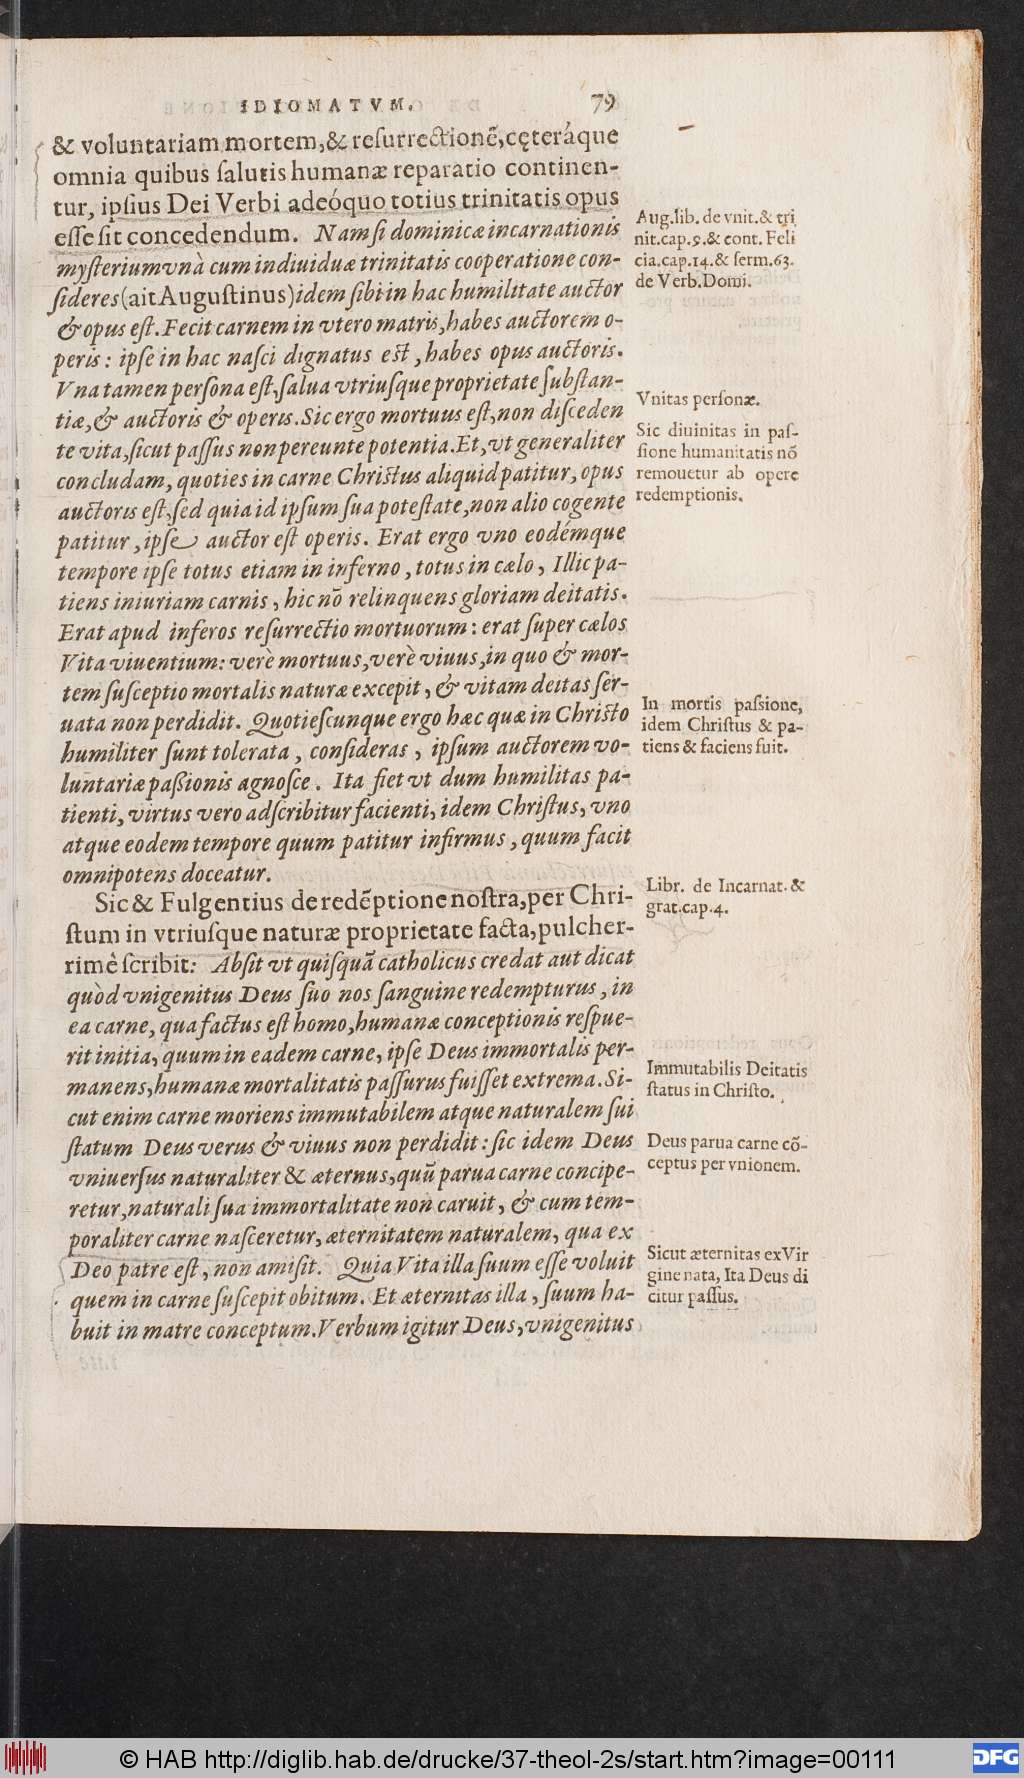 IDIOMATVM. 79
& voluntariam mortem, & reſurrectionẽ, cęteráque
omnia quibus ſalutis humanæ reparatio continen-
tur, ipſius Dei Verbi adeóquo totius trinitatis opus
eſſe ſit concedendum. Nam ſi dominicæ incarnationis
myſterium vnà cum indiuiduæ trinitatis cooperatione con-
ſideres (ait Auguſtinus) idem ſibi in hac humilitate auctor
& opus eſt. Fecit carnem in vtero matris, habes auctorem o-
peris: ipſe in hac naſci dignatus eſt, habes opus auctoris.
Vna tamen perſona eſt, ſalua vtriuſque proprietate ſubſtan-
tiæ, & auctoris & operis. Sic ergo mortuus eſt, non diſceden
te vita, ſicut paſſus non pereunte potentia. Et, vt generaliter
concludam, quoties in carne Chriſtus aliquid patitur, opus
auctoris eſt, ſed quia id ipſum ſua poteſtate, non alio cogente
patitur, ipſe auctor eſt operis. Erat ergo vno eodémque
tempore ipſe totus etiam in inferno, totus in cælo, Illic pa-
tiens iniuriam carnis, hic nõ relinquens gloriam deitatis.
Erat apud inferos reſurrectio mortuorum: erat ſuper cælos
Vita viuentium: verè mortuus, verè viuus, in quo & mor-
tem ſuſceptio mortalis naturæ excepit, & vitam deitas ſer-
uata non perdidit. Quotieſcunque ergo hæc quæ in Chriſto
humiliter ſunt tolerata, conſideras, ipſum auctorem vo-
luntariæ paßionis agnoſce. Ita fiet vt dum humilitas pa-
tienti, virtus vero adſcribitur facienti, idem Chriſtus, vno
atque eodem tempore quum patitur infirmus, quum facit
omnipotens doceatur.
Sic & Fulgentius de redẽptione noſtra, per Chri-
ſtum in vtriuſque naturæ proprietate facta, pulcher-
rimè ſcribit: Abſit vt quiſquã catholicus credat aut dicat
quòd vnigenitus Deus ſuo nos ſanguine redempturus, in
ea carne, qua factus eſt homo, humanæ conceptionis reſpue-
rit initia, quum in eadem carne, ipſe Deus immortalis per-
manens, humanæ mortalitatis paſſurus fuiſſet extrema. Si-
cut enim carne moriens immutabilem atque naturalem ſui
ſtatum Deus verus & viuus non perdidit: ſic idem Deus
vniuerſus naturaliter & æternus, quũ parua carne concipe-
retur, naturali ſua immortalitate non caruit, & cum tem-
poraliter carne naſceretur, æternitatem naturalem, qua ex
Deo patre eſt, non amiſit. Quia Vita illa ſuum eſſe voluit
quem in carne ſuſcepit obitum. Et æternitas illa, ſuum ha-
buit in matre conceptum. Verbum igitur Deus, vnigenitus
Aug. lib. de vnit. & tri
nit. cap. 9. & cont. Feli
cia. cap. 14. & ſerm. 63.
de Verb. Domi.
Vnitas perſonæ.
Sic diuinitas in paſ-
ſione humanitatis nõ
remouetur ab opere
redemptionis.
In mortis paſsione,
idem Chriſtus & pa-
tiens & faciens fuit.
Libr. de Incarnat. &
grat. cap. 4.
Immutabilis Deitatis
ſtatus in Chriſto.
Deus parua carne cõ-
ceptus per vnionem.
Sicut æternitas ex Vir
gine nata, Ita Deus di
citur paſſus.
© HAB http://diglib.hab.de/drucke/37-theol-2s/start.htm?image=00111
DFG